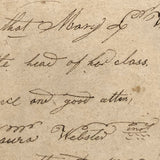 that Mary L. W
the head of her class.
ce and good atten,
aura Webster